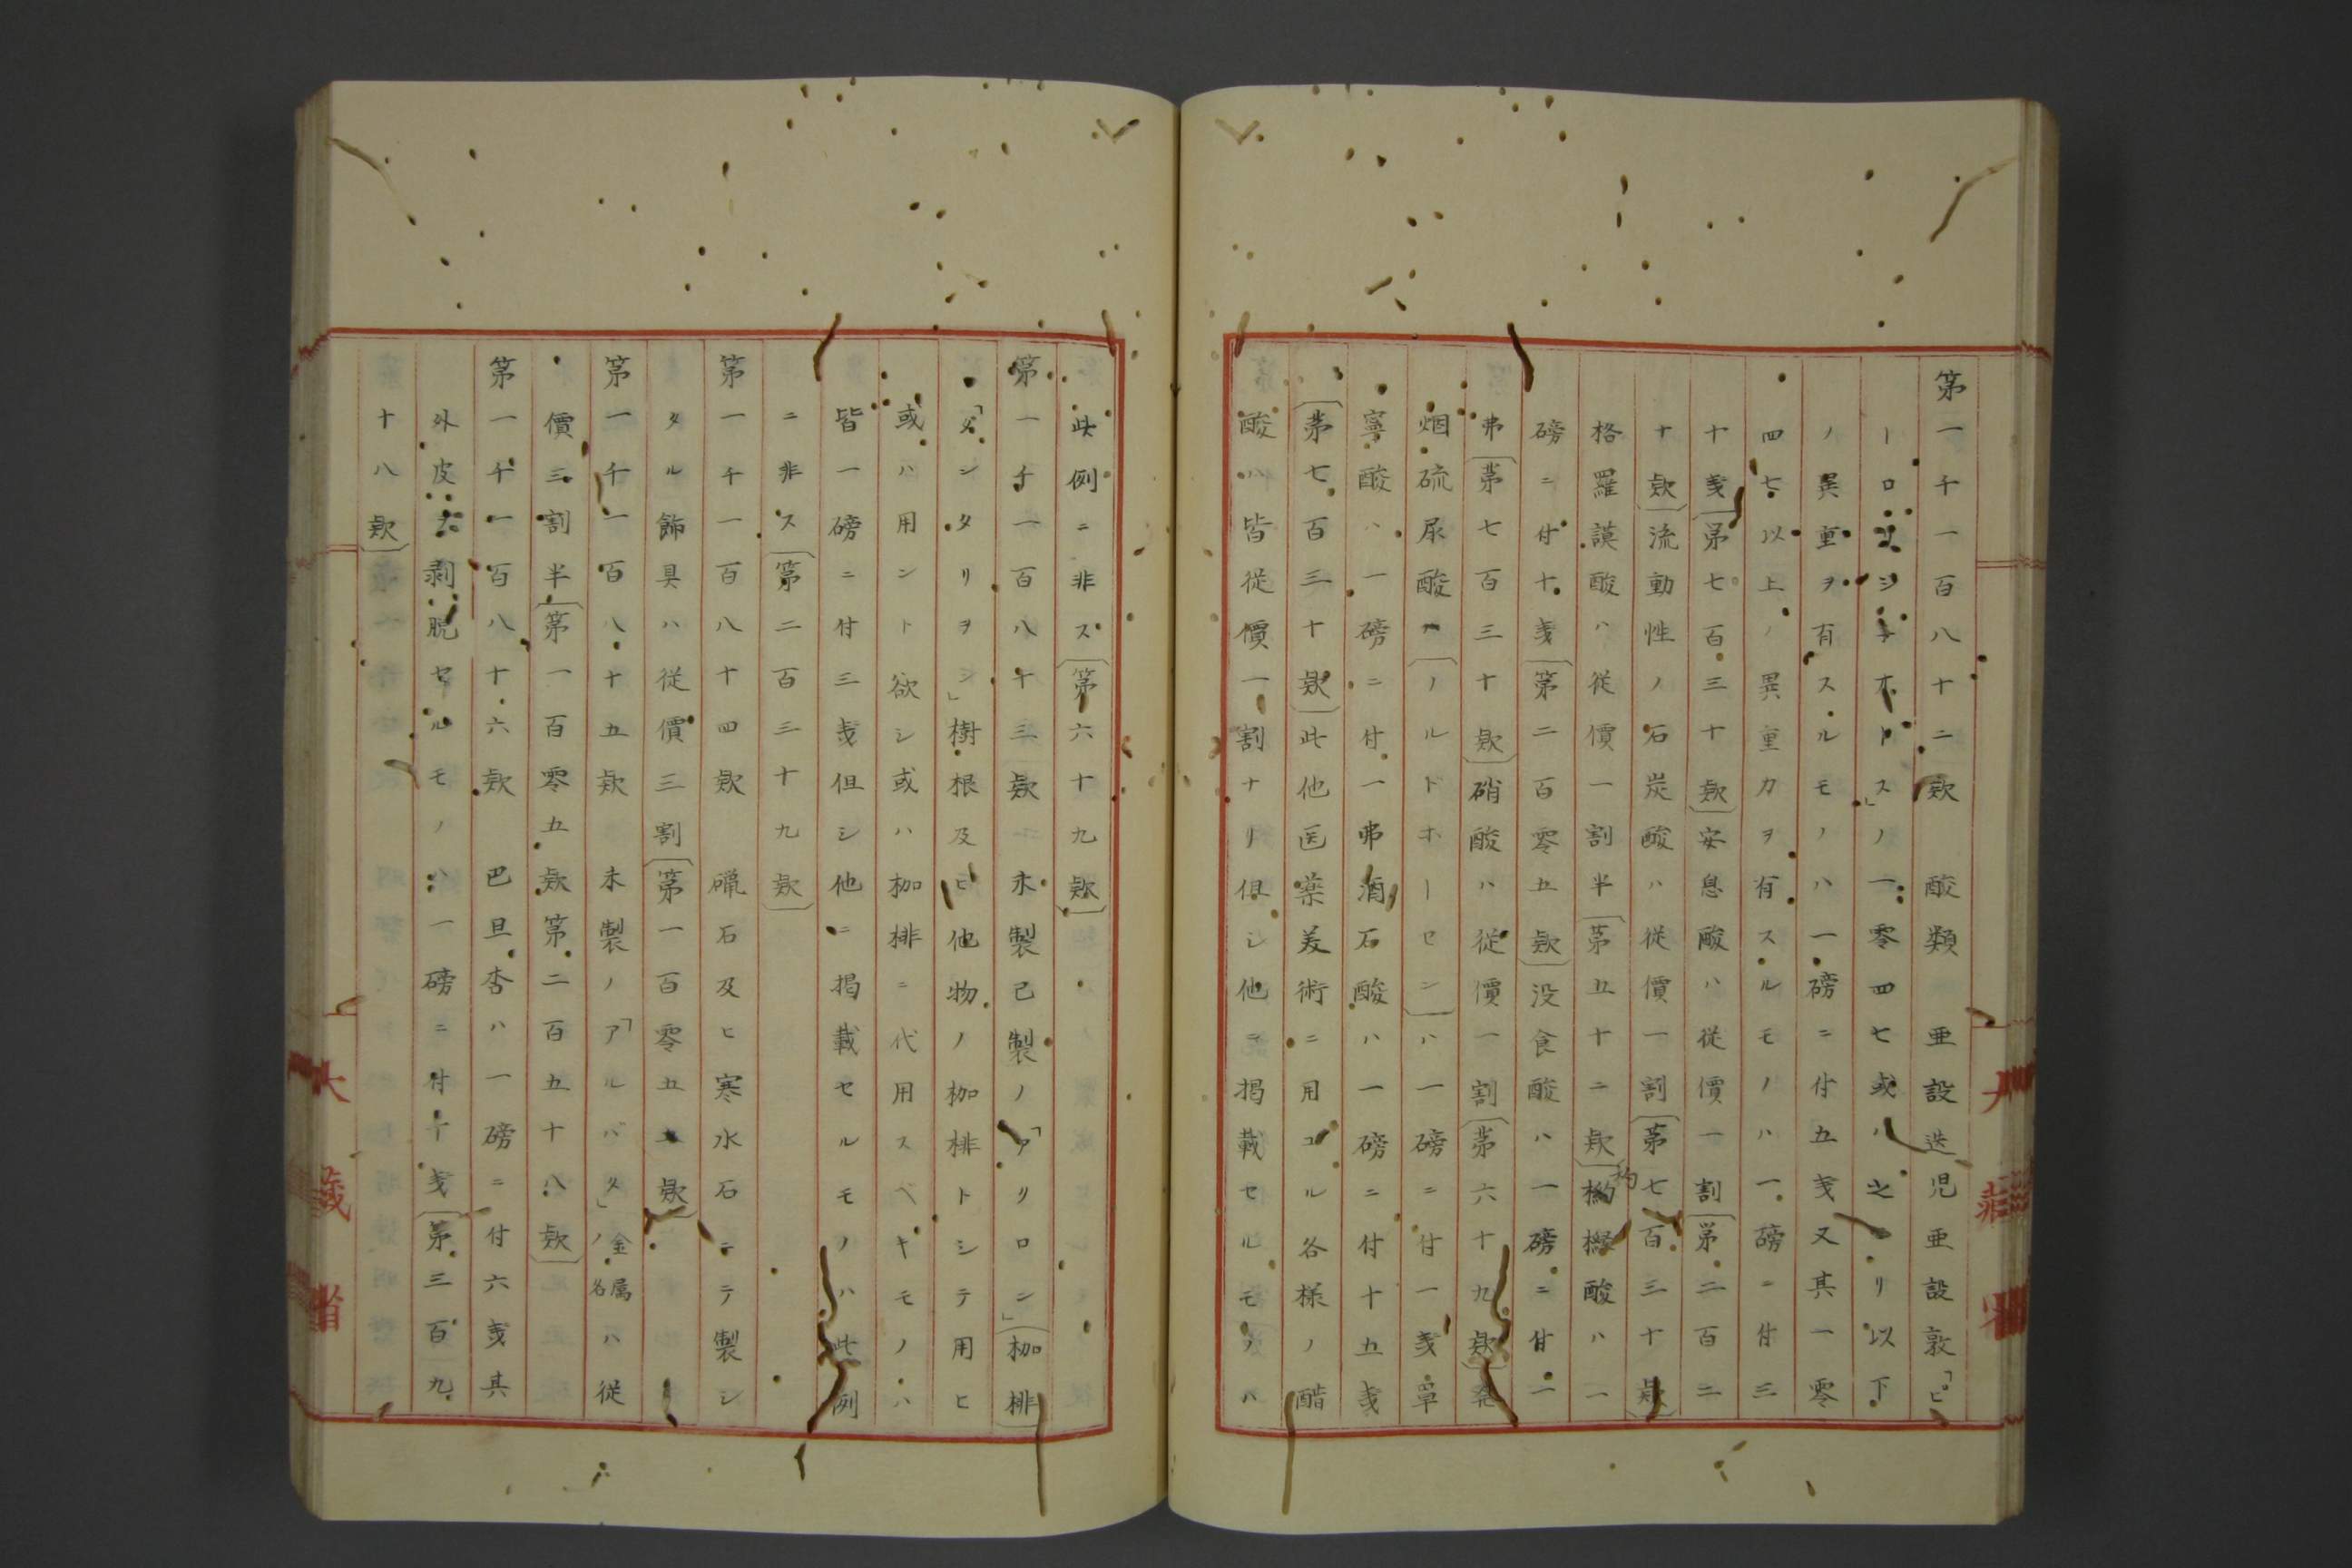 第一千一百八十二欵　酸類　亜設迭児亜設敦「ピ
ーロリジ子オトス」ノ一零四七或ハ之ヨリ以下
ノ異重ヲ有スルモノハ一磅ニ付五戔又其一零
四七以上ノ異重力ヲ有スルモノハ一磅ニ付三
十戔〔第七百三十欵〕安息酸ハ従價一割〔第二百二
十欵〕流動性ノ石炭酸ハ従價一割〔第七百三十欵〕
格羅謨酸ハ従價一割半〔第五十二欵〕枸櫞酸ハ一
磅ニ付十戔〔第二百零五欵〕没食酸ハ一磅ニ付一
弗〔第七百三十欵〕硝酸ハ従價一割〔第六十九欵〕発
烟硫尿酸〔ノルドホーセン〕ハ一磅ニ付一戔單
寧酸ハ一磅ニ付一弗酒石酸ハ一磅ニ付十五戔
〔第七百三十欵〕此他医薬美術ニ用ユル各様ノ醋
酸ハ皆従價一割ナリ但シ他ニ掲載セルモノハ
此例ニ非ス〔第六十九欵〕
第一千一百八十三欵　未製已製ノ「アリロン」〔枷排〕
「ダンタリヲン」樹根及ヒ他物ノ枷排トシテ用ヒ
或ハ用ント欲シ或ハ枷排ニ代用スベキモノハ
皆一磅ニ付三戔但シ他ニ掲載セルモノハ此例
ニ非ス〔第二百三十九欵〕
第一千一百八十四欵　礟石及ヒ寒水石ニテ製シ
タル飾具ハ従價三割〔第一百零五欵〕
第一千一百八十五欵　未製ノ「アルバタ」ノ金属各ハ従
價三割半〔第一百零五欵第二百五十八欵〕
第一千一百八十六欵　巴旦杏ハ一磅ニ付六戔其
外皮ヲ剥脱セルモノハ一磅ニ付十戔〔第三百九
十八欵〕
大藏省